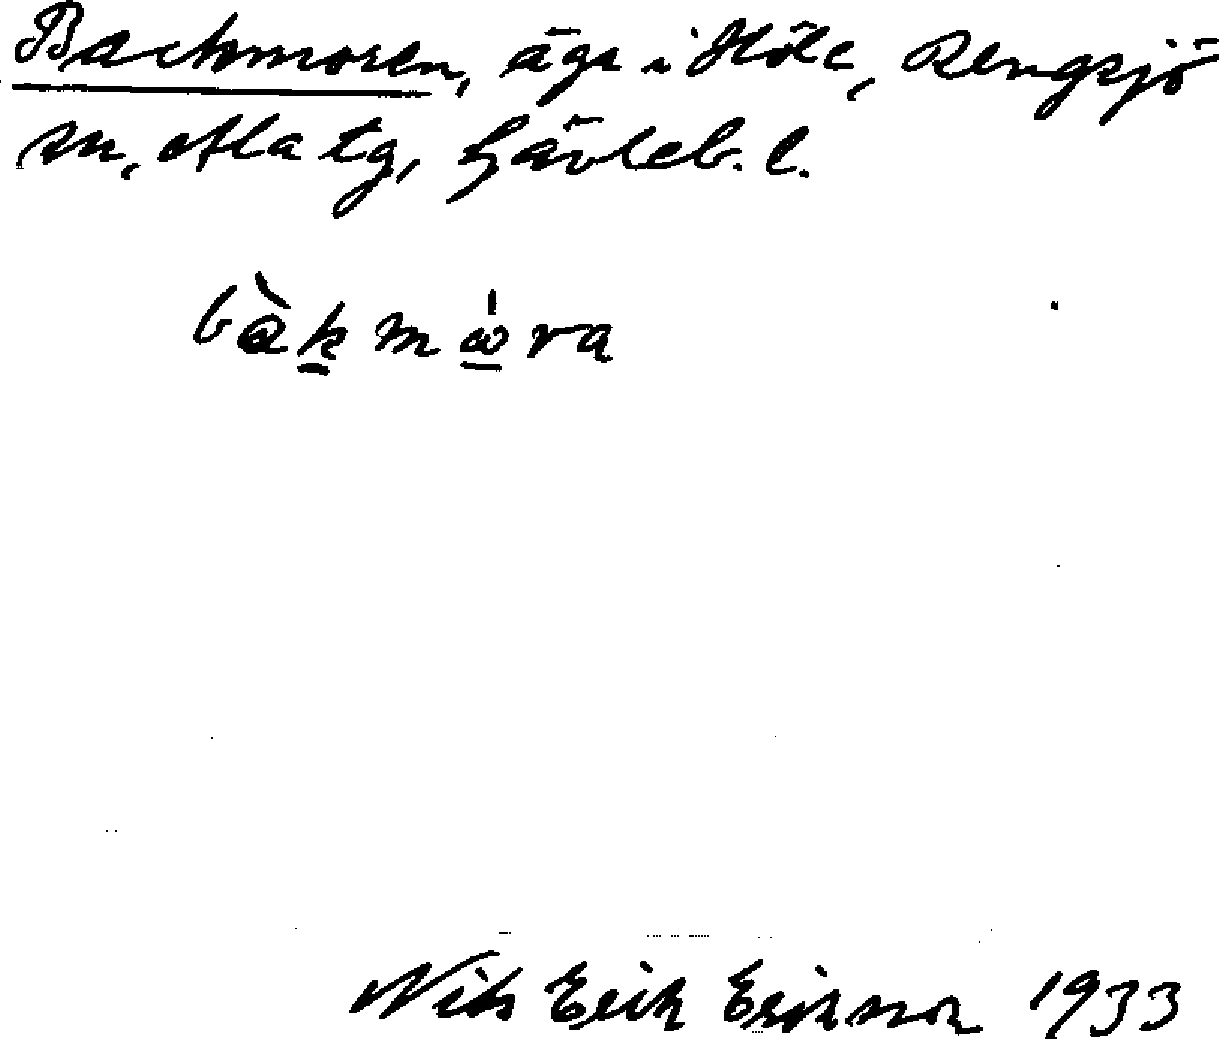 Backmoren, äga i Höle, Rengsjö
sn, Ala tg, Gävleb. l.
bàkmȯra
Nils Erik Eriksson 1933